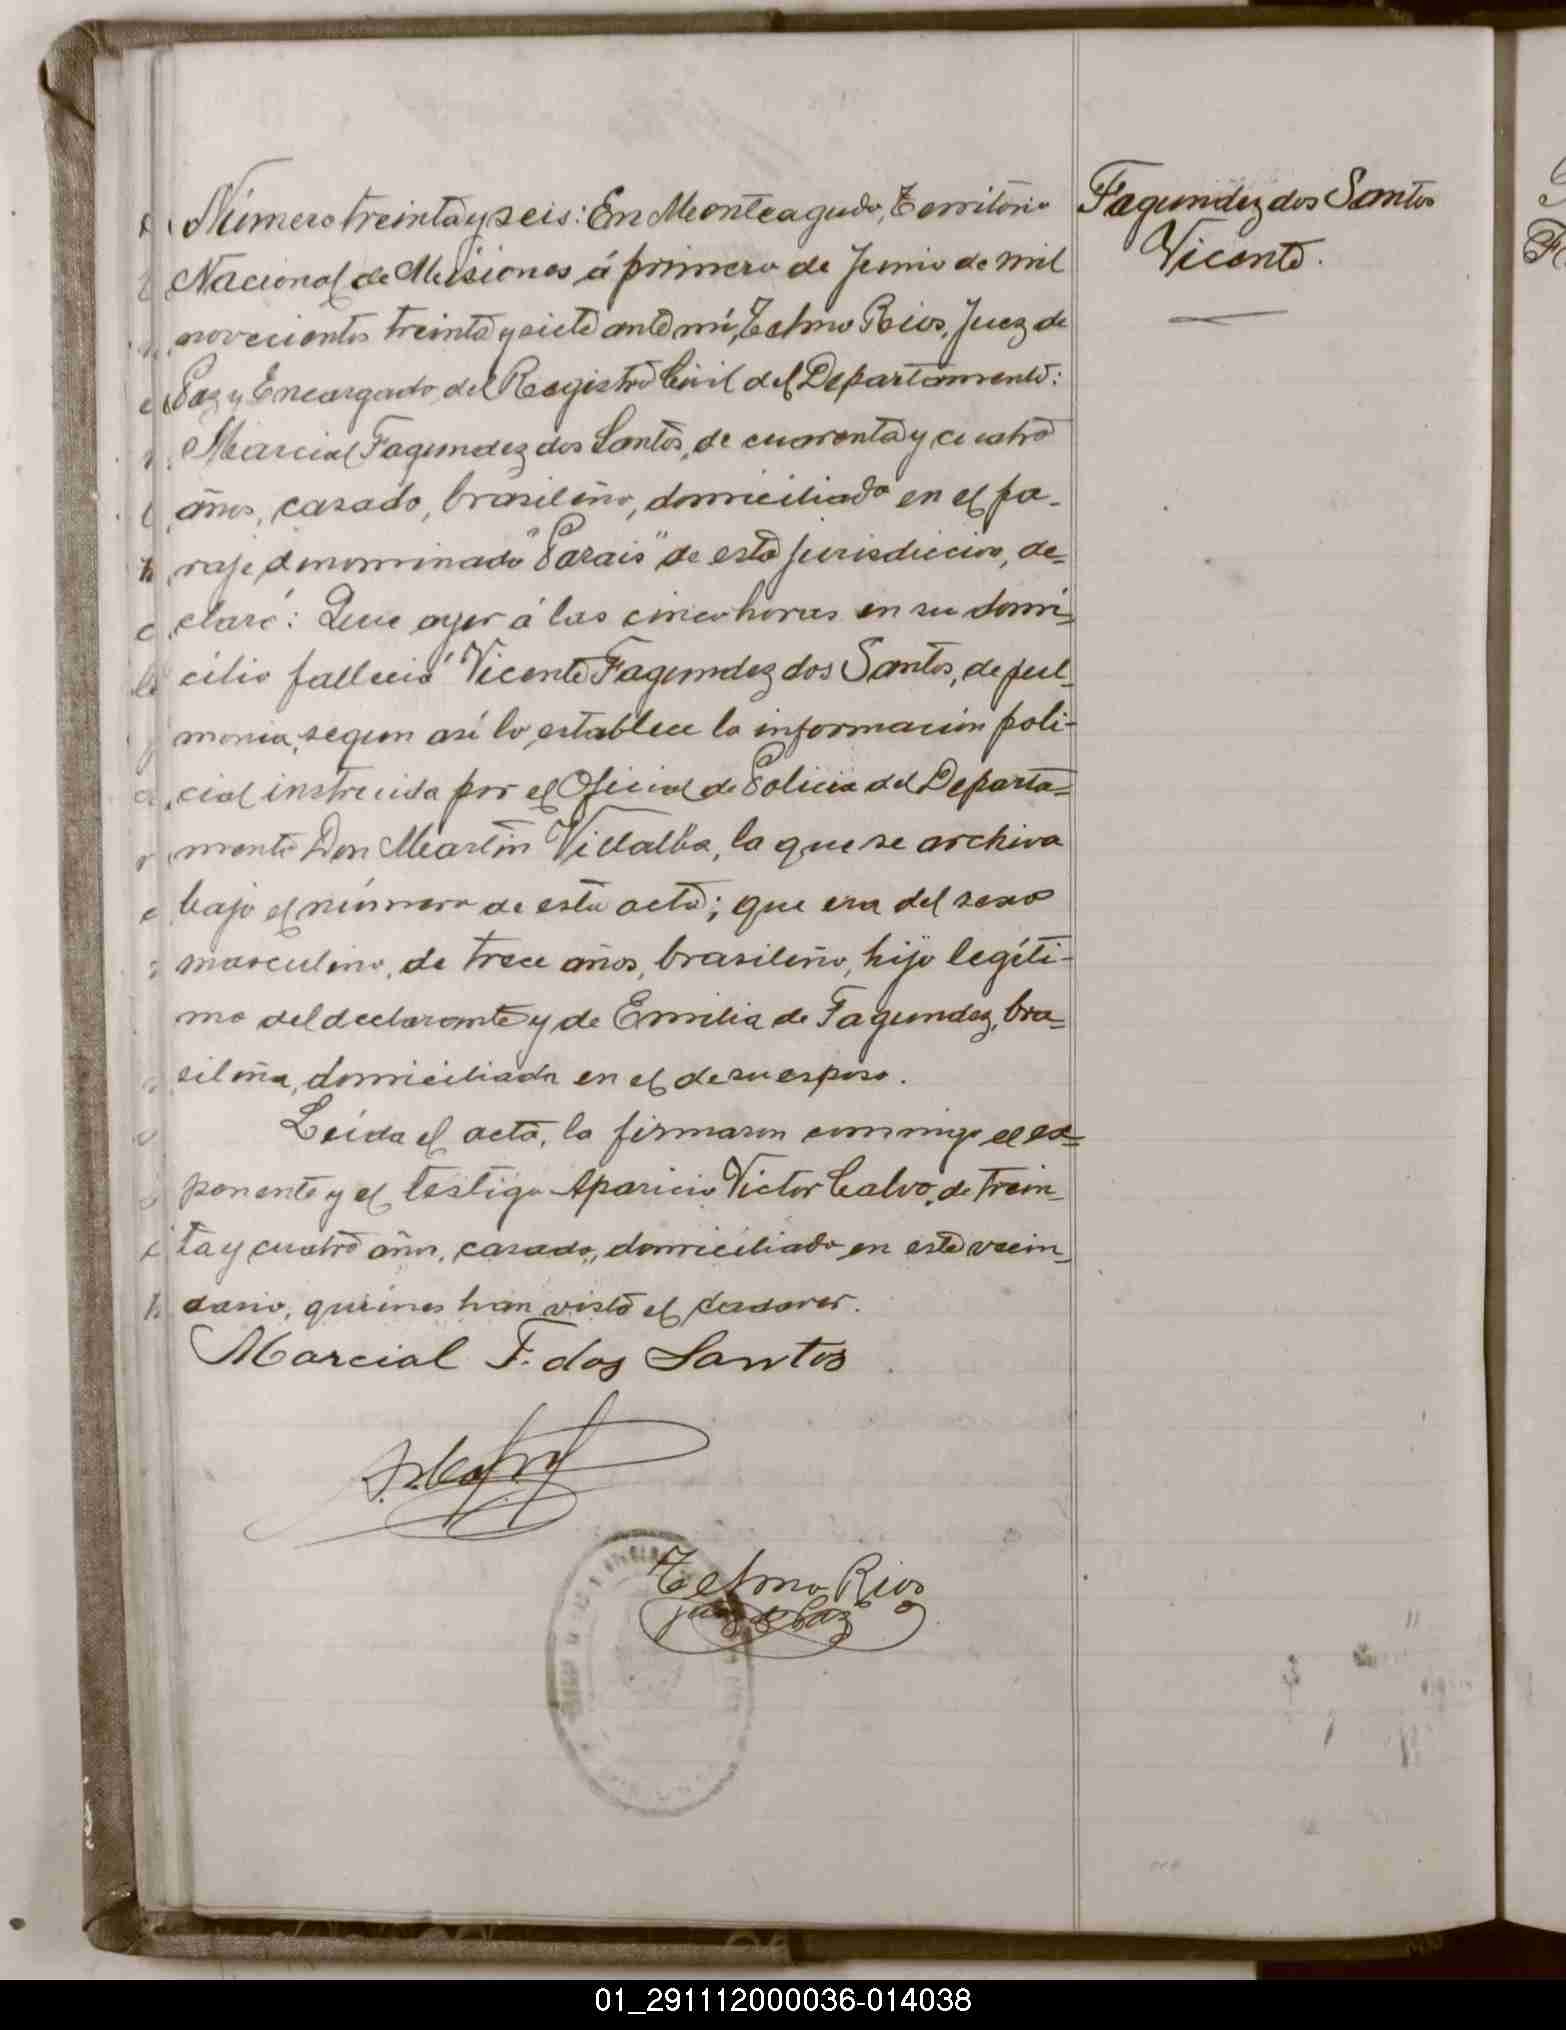 Número treinta y seis: En Monteagudo, Territorio
Nacional de Misiones á primero de Junio de mil
novecientos treinta y siete ante mí, Telmo Rios, Juez de
Paz y Encargado del Registro Civil del Departamento:
Marcial Fagundez dos Santos, de cuarenta y cuatro
años, casado, brasileño, domiciliado en el pa-
raje denominado "Parais" de esta jurisdiccion, de-
claró: Que ayer á las cinco horas en su domi-
cilio falleció Vicente Fagundez dos Santos, de pul-
monia, segun así lo establece la información poli-
cial instruida por el Oficial de Policia del Departa-
mento Don Martin Villalba, la que se archiva
bajo el número de esta acta; que era del sexo
masculino, de trece años, brasileño, hijo legíti-
mo del declarante y de Emilia de Fagundez, bra-
sileña, domiciliada en el de su esposo.
Leída el acta, la firmaron conmigo el ex-
ponente y el testigo Aparicio Victor Calvo, de trein-
ta y cuatro años, casado, domiciliado en este vecin-
dario, quienes han visto el cadaver.
Marcial F. dos Santos
Telmo Rios
Juez de Paz
Fagundez dos Santos
Vicente.
01_291112000036-014038